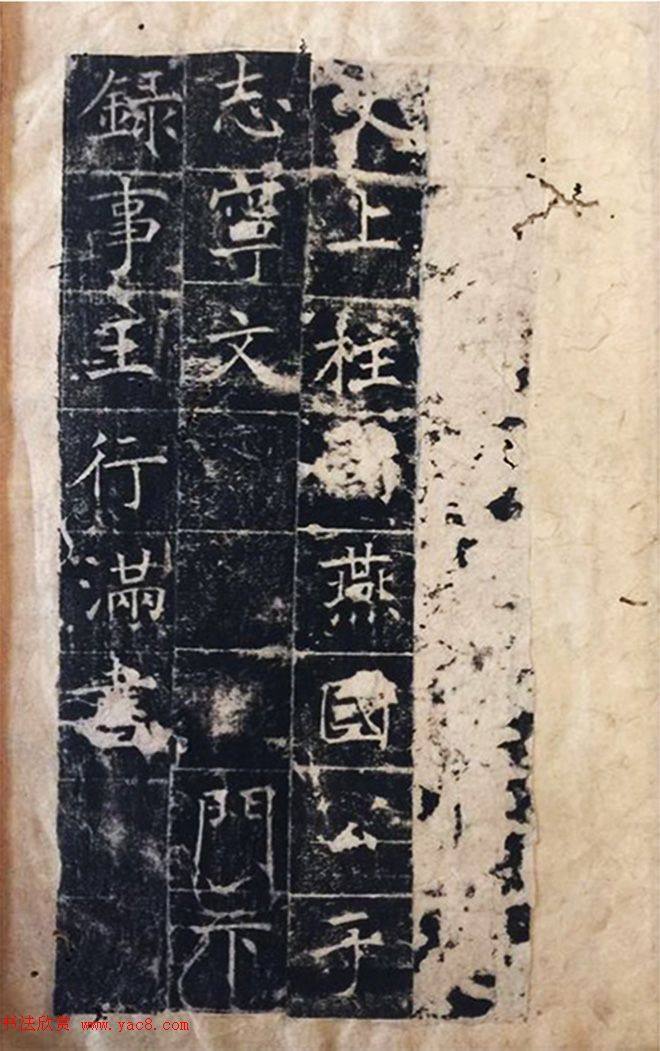 大上柱國燕國公于
志寧文 門下
録事王行滿書
书法欣赏 www.yac8.com